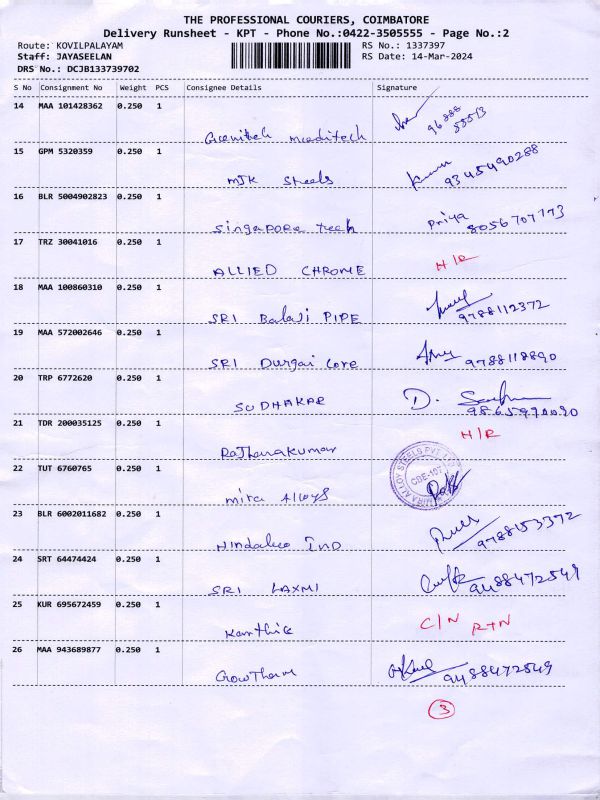 THE PROFESSIONAL COURIERS, COIMBATORE
Delivery Runsheet - KPT - Phone No.:0422-3505555 - Page No.:2
Route: KOVILPALAYAM RS No.: 1337397
Staff: JAYASEELAN RS Date: 14-Mar-2024
DRS No.: DCJB133739702
S No Consignment No Weight PCS Consignee Details Signature
14 MAA 101428362 0.250 1 meditech 96888 55513
15 GPM 5320359 0.250 1 MJK Steels 9345490288
16 BLR 5004902823 0.250 1 Singapore Tech Priya 8056707173
17 TRZ 30041016 0.250 1 ALLIED CHROME H/R
18 MAA 100860310 0.250 1 SRI Balaji PIPE 9788112372
19 MAA 572002646 0.250 1 SRI Durgai Core 9788118890
20 TRP 6772620 0.250 1 SUDHAKAR D.
21 TDR 200035125 0.250 1 Rathanakumar H/R
22 TUT 6760765 0.250 1 mira Alloys ALLOY STEELS PVT CBE-107
23 BLR 6002011682 0.250 1 Hindalco IND 9788153372
24 SRT 64474424 0.250 1 SRI LAXMI 9488472549
25 KUR 695672459 0.250 1 Karthick C/N RTN
26 MAA 943689877 0.250 1 Gowtham 9488472549
3